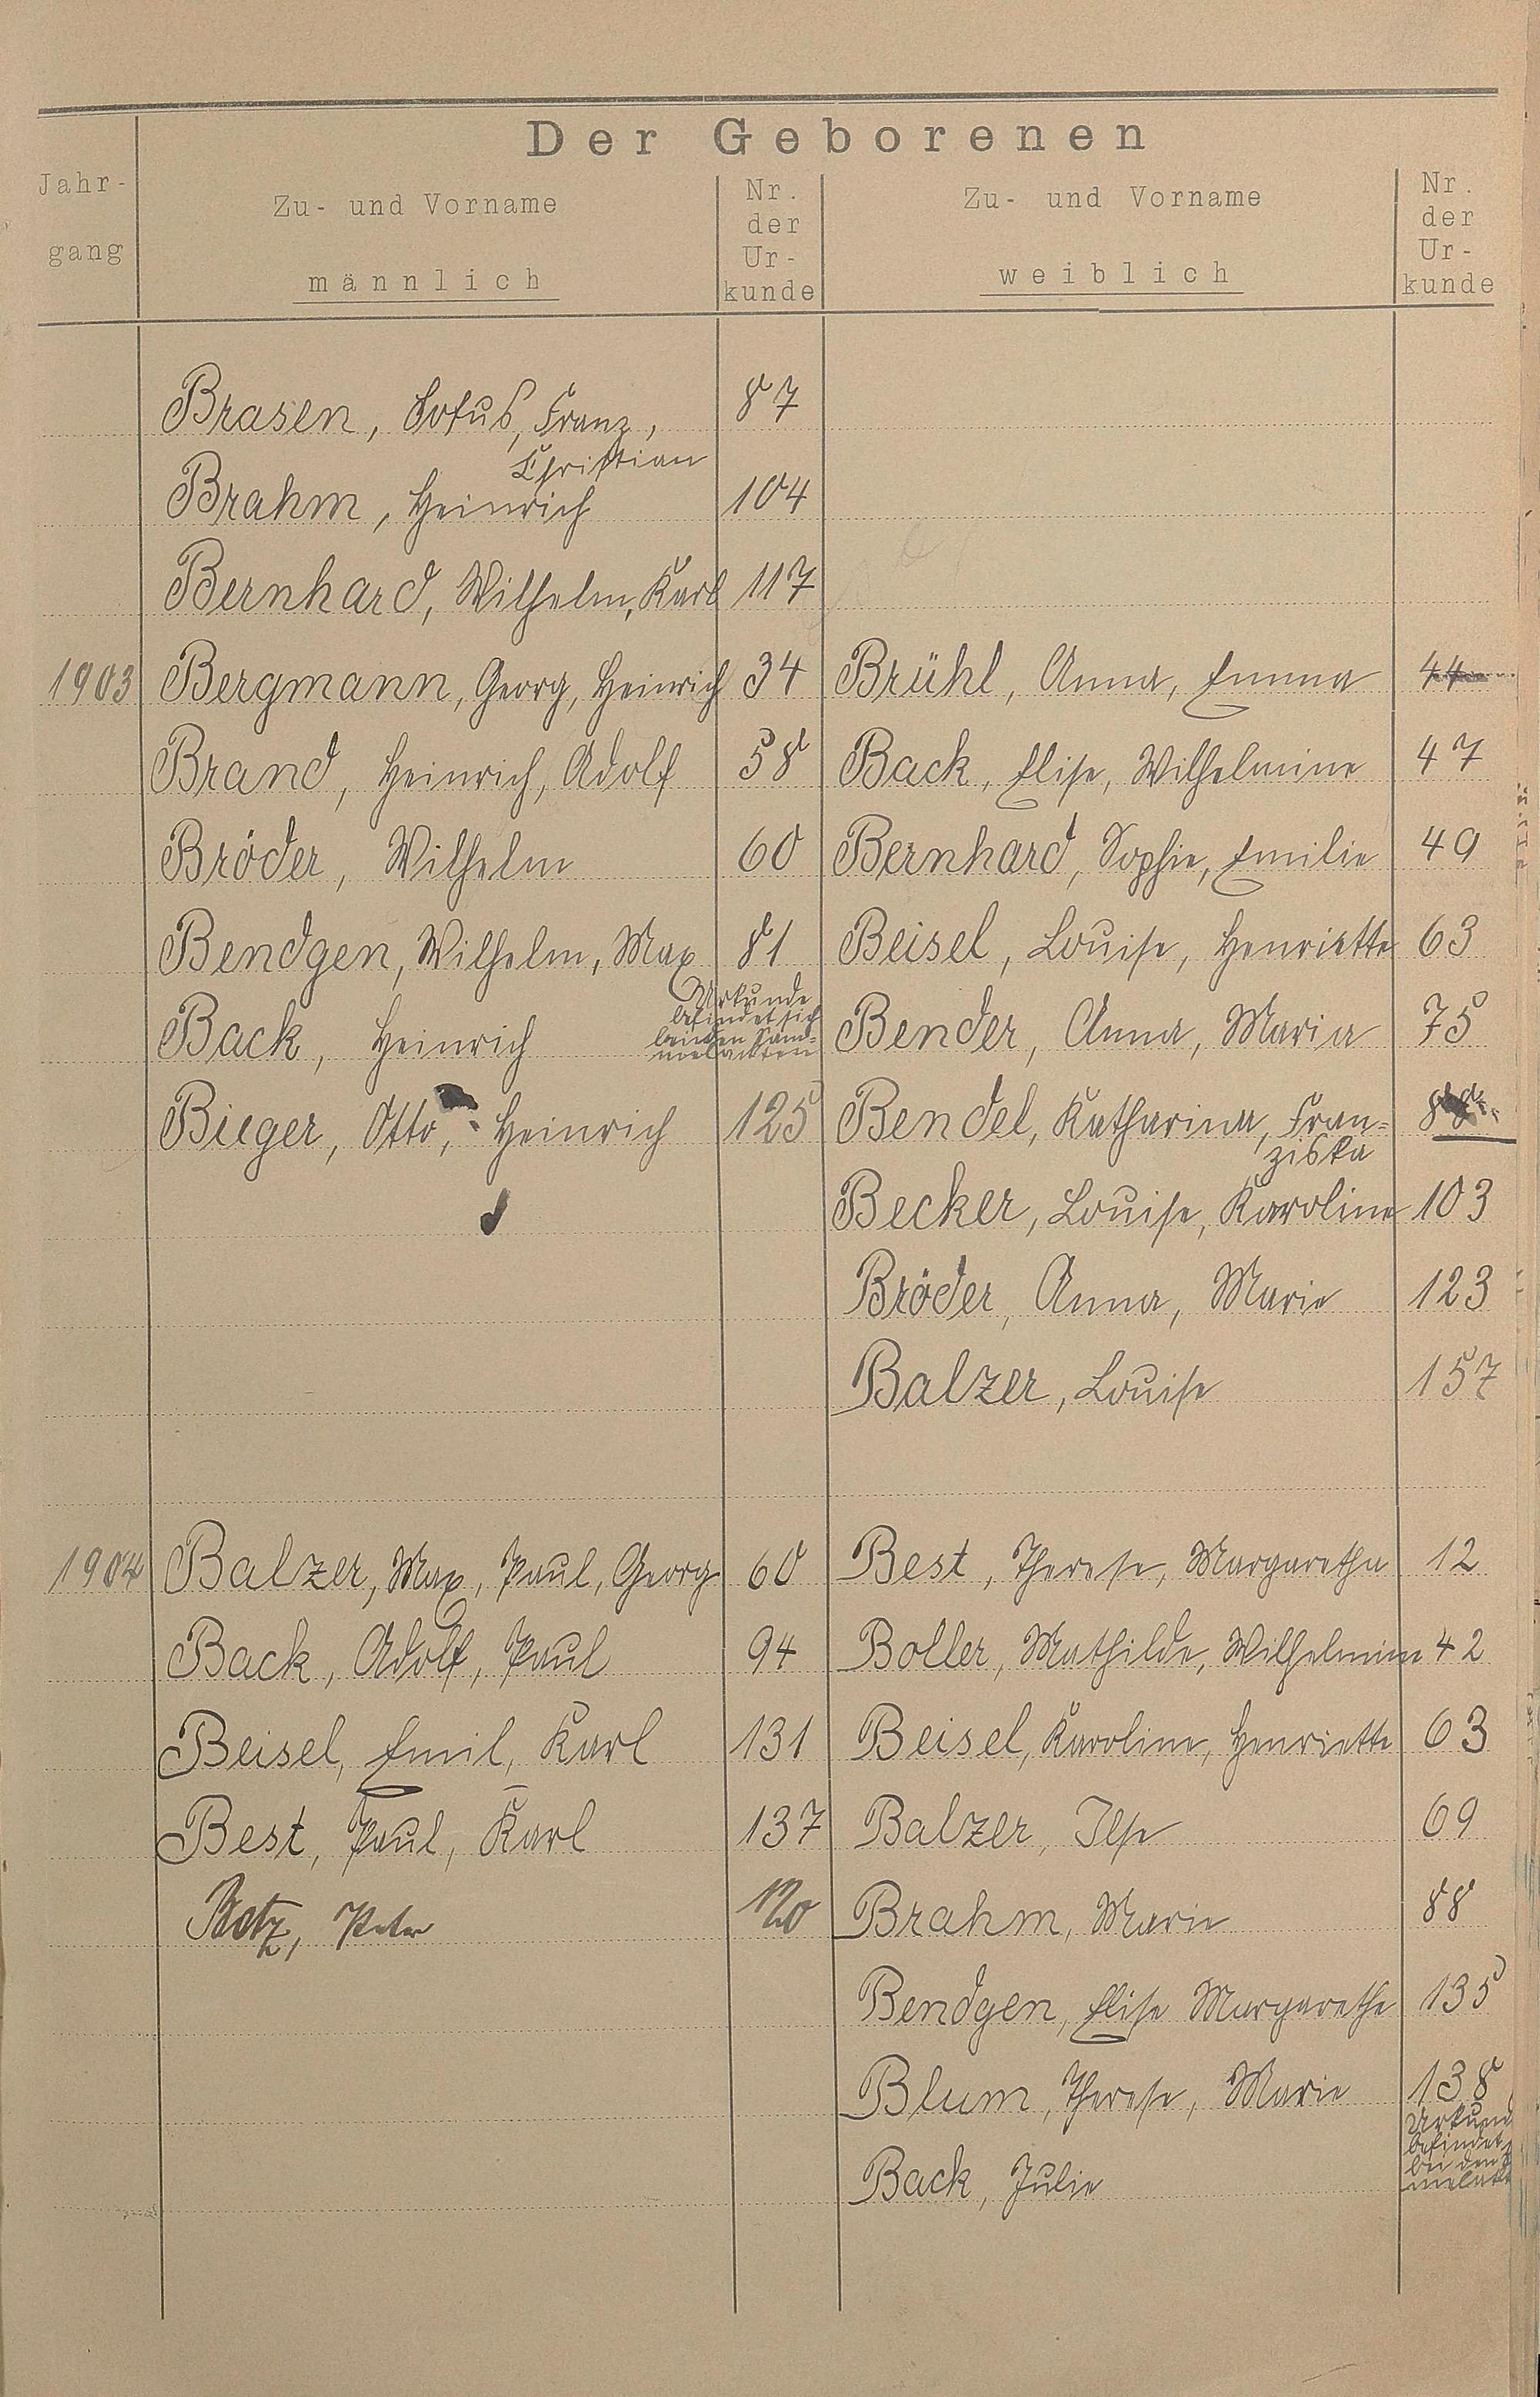 Der Geborenen
Jahr-
gang
Zu- und Vorname
männlich
Nr.
der
Ur-
kunde
Zu- und Vorname
weiblich
Nr.
der
Ur-
kunde
Brasen, Franz, 87
Christian
Brahm, Heinrich 104
Bernhard, Wilhelm, Karl 117
1903 Bergmann, Georg, Heinrich 34 Brühl, Anna, Emma 44
Brand, Heinrich, Adolf 58 Back, Elise, Wilhelmine 47
Bröder, Wilhelm 60 Bernhard, Sophie, Emilie 49
Bendgen, Wilhelm, Max 81 Beisel, Louise, Henriette 63
Back, Heinrich Bender, Anna, Maria 75
Urkunde
befindet sich
bei den Sam-
melakten
Bieger, Otto, Heinrich 125 Bendel, Katharina, Fran-
ziska
Becker, Louise, Karoline 103
Bröder, Anna, Marie 123
Balzer, Louise 157
1904 Balzer, Max, Paul, Georg 60 Best, Therese, Margaretha 12
Back, Adolf, Paul 94 Boller, Mathilde, Wilhelmine 42
Beisel, Emil, Karl 131 Beisel, Karoline, Henriette 63
Best, Paul, Karl 137 Balzer, Ilse 69
Botz, Peter 120 Brahm, Marie 88
Bendgen, Elise Margarethe 135
Blum, Therese, Marie 138
Back, Julie
Urkund
befindet
bei den
melakt